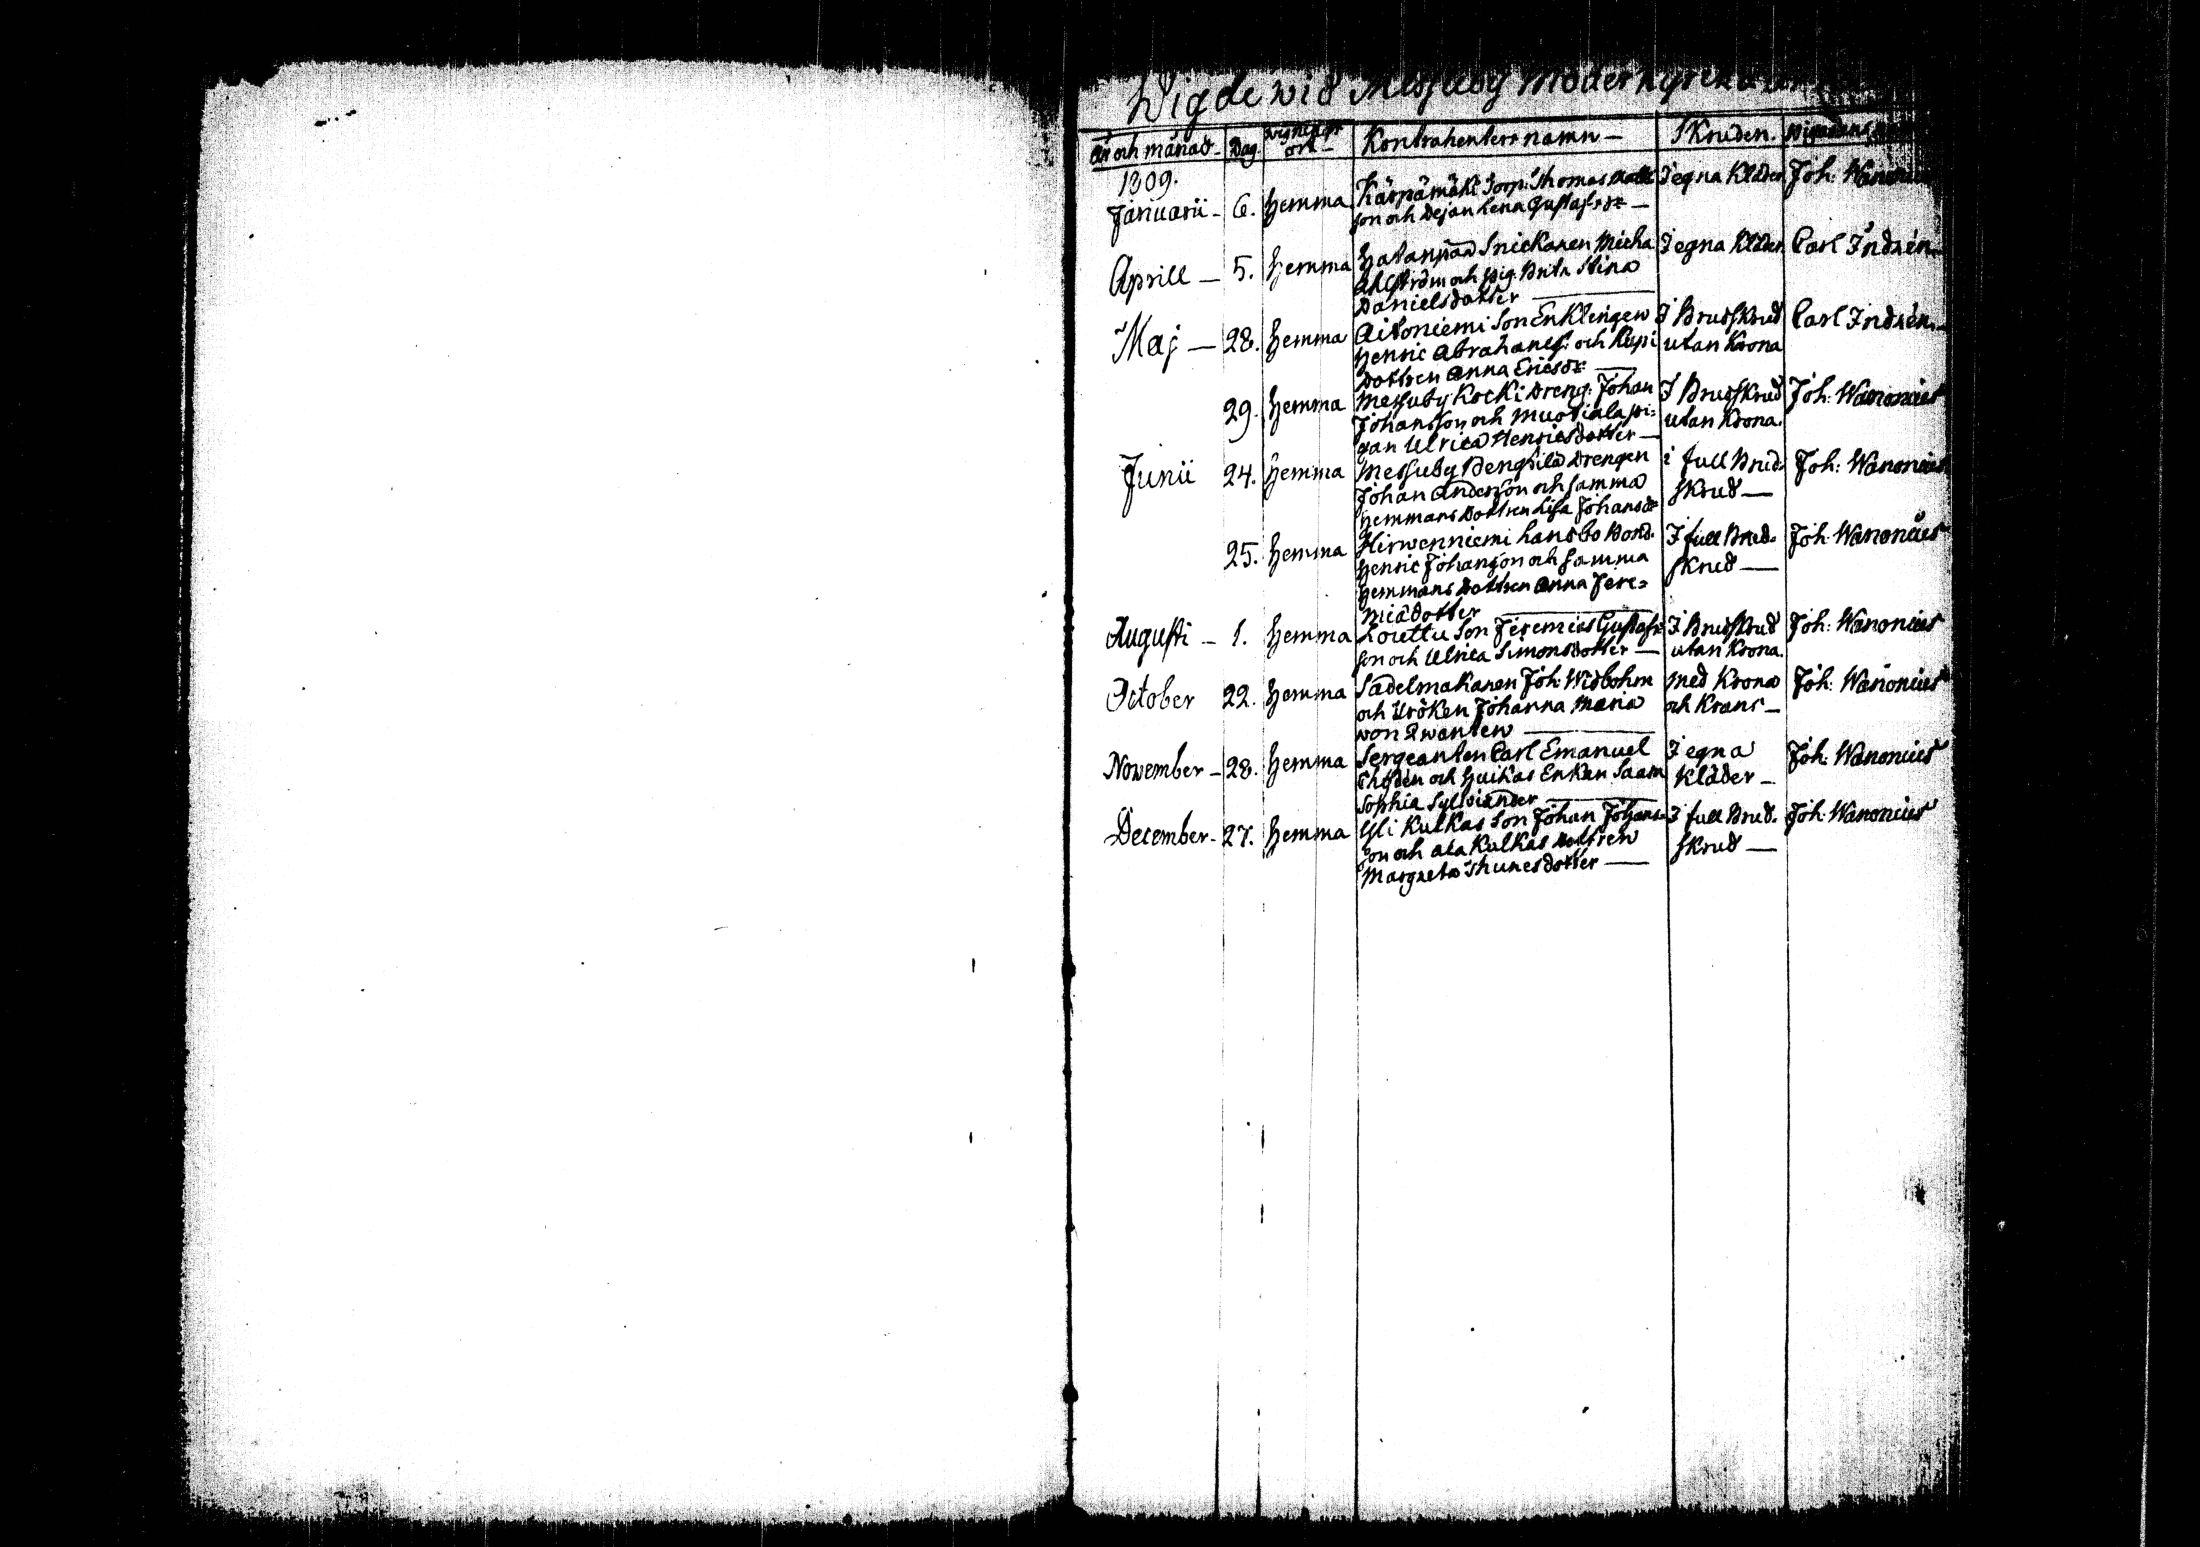 Wigde wid Messuby Moderkyrcka
År och månad. Dag. wignings ort Kontrahenters namn Skruden.
1809.
Januarii 6. hemma Kärpämäki Torp: Thomas I egna Kläder Joh: Wanonius
son och Dejan Lena Gustafsdr
Aprill 5. hemma Hatanpää Snickaren Micha I egna Kläder Carl Indrén
Ahlström och pig. Brita Stina
Danielsdotter
Maj 28. hemma Aitoniemi Son Enklingen I Brudskrud Carl Indrén
Henric Abrahamss: och Rupi utan Krona
Dottren Anna Ericsdr
29. hemma Messuby Kocki Dreng. Johan I Brudskrud Joh: Wanonius
Johansson och Muotiala pi= utan Krona.
gan Ulrica Henricsdotter
Junii 24. hemma Messuby Bengsila Drengen i full Brud= Joh: Wanonius
Johan Andersson och samma skrud
hemmans Dottren Lisa Johansdr
25. hemma Hirwenniemi Landbo Bond. I full Brud= Joh: Wanonius
Henric Johansson och samma skrud
hemmans Dottren Anna Jere=
miædotter
Augusti 1. hemma Son Jeremias Gustafs= I Brudskrud Joh: Wanonius
son och Ulrica Simonsdotter utan Krona.
October 22. hemma Sadelmakaren Joh: Widbohm med Krona Joh: Wanonius
och Fröken Johanna Maria och Krans
von Qwanten
November 28. hemma Sergeanten Carl Emanuel I egna Joh: Wanonius
och Huikas Enkan Kläder
Sophia Sylviander
December 27. hemma Yli Kulkas Son Johan Johans= I full Brud= Joh: Wanonius
son och Ala Kulkas Dottren skrud
Margareta Thomasdotter